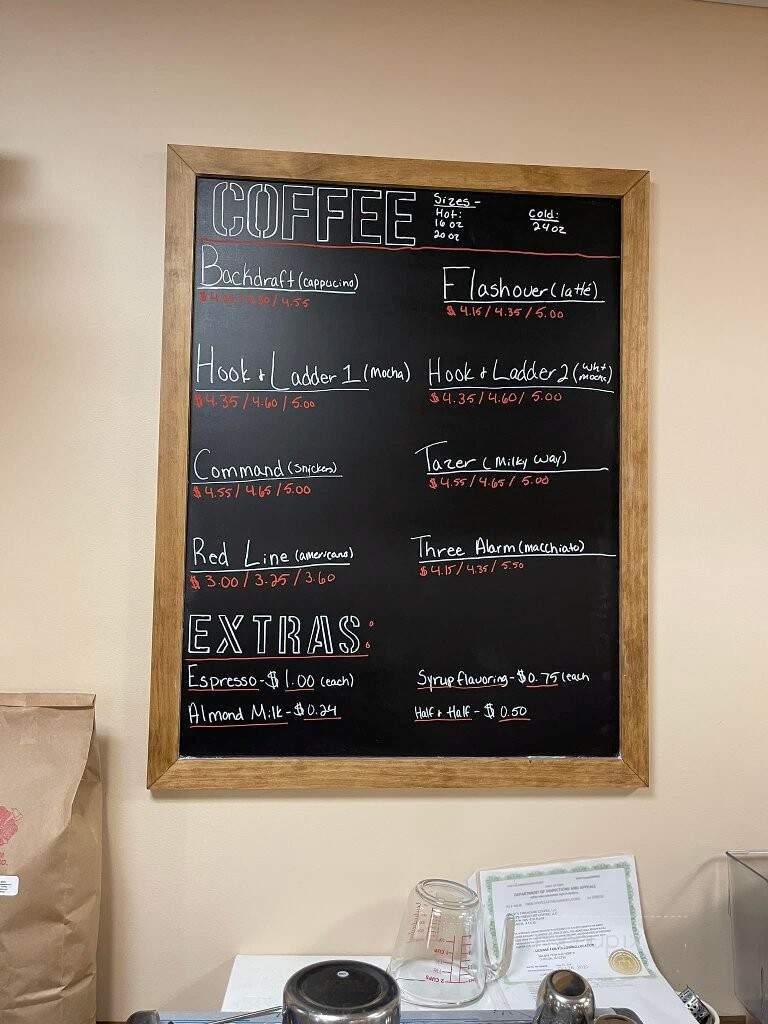 COFFEE
Sizes -
Hot:
16 oz
20 oz
Cold:
24oz
Backdraft (cappucino)
4.55
Flashover (latté)
$ 4.15 / 4.35 / 5.00
Hook & Ladder 1 (Mocha)
$ 4.35 / 4.60 / 5.00
Hook & Ladder 2 (wht mocha)
$ 4.35 / 4.60 / 5.00
Command (Snickers)
$ 4.55 / 4.65 / 5.00
Tazer (Milky Way)
$ 4.55 / 4.65 / 5.00
Red Line (americano)
$ 3.00 / 3.25 / 3.60
Three Alarm (macchiato)
$ 4.15 / 4.35 / 5.50
EXTRAS:
Espresso - $ 1.00 (each)
Syrup flavoring - $0.75 (each
Almond Milk - $0.24
Half & Half - $ 0.50
DEPARTMENT OF INSPECTIONS AND APPEALS
2 CUPS